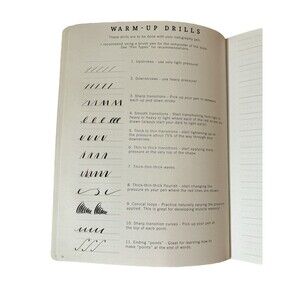 WARM-UP DRILLS
These drills are to be done with your calligraphy pen.
I recommend using a brush pen for the remainder of the book.
See "Pen Types" for recommendations.
1. Upstrokes - use very light pressure
2. Downstrokes - use heavy pressure
3. Sharp transitions - Pick up your pen in between
each up and down stroke
4. Smooth transitions - Start transitioning from light to
heavy or heavy to light where each of the red dots are
drawn
5. Thick to thin transitions - start lightening up on
the pressure about 75% of the way through your
downstroke.
6. Thin to thick transitions - start applying
more pressure at the very end of the stroke.
7. Thick-thin-thick waves
8. Thick-thin-thick flourish - start changing the
pressure as you pen where the red dots are shown.
9. Conical loops - Practice naturally varying the pressure
applied. This is great for developing muscle memory!
10. Sharp transition curves - Pick up your pen at
the top of each point.
11. Ending "points" - Great for learning how to
make "points" at the end of words.